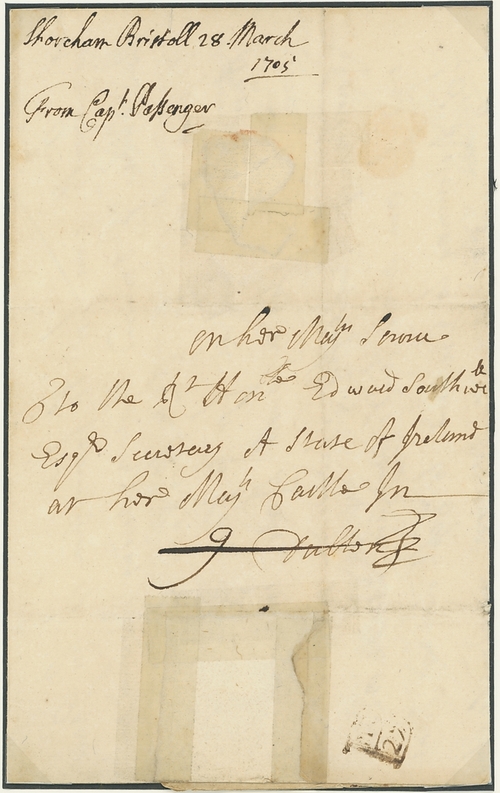 Shoreham Bristoll 28 March
1705
From Capt. Passenger
On her Majts Servie
To the Rt Honble Edward Southwell
Esqr Secretary of State of Ireland
at her Majts Castle In
Dublin